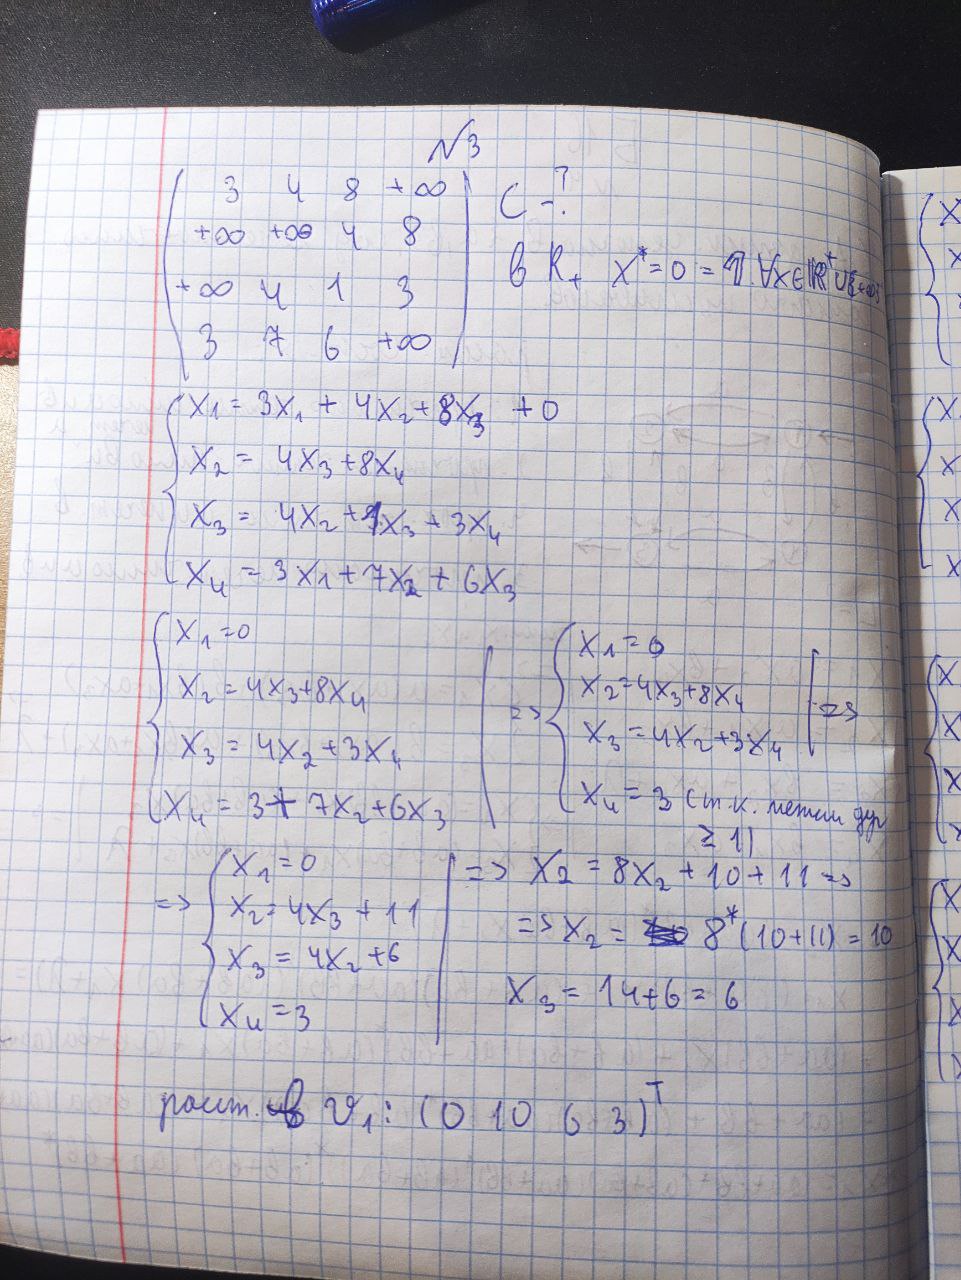 №3
3 4 8 +∞
+∞ +∞ 4 8
+∞ 4 1 3
3 7 6 +∞
C - ?
в R₊ X* = 0 = 𝟙 ∀x∈ℝ⁺∪{+∞}
X₁ = 3X₁ + 4X₂ + 8X₃ + 0
X₂ = 4X₃ + 8X₄
X₃ = 4X₂ + 1X₃ + 3X₄
X₄ = 3X₁ + 7X₂ + 6X₃
X₁ = 0
X₂ = 4X₃ + 8X₄
X₃ = 4X₂ + 3X₄
X₄ = 3 + 7X₂ + 6X₃
=> X₁ = 0
X₂ = 4X₃ + 8X₄
X₃ = 4X₂ + 3X₄
X₄ = 3 (т.к. метки дуг
≥ 1)
=>
=> X₁ = 0
X₂ = 4X₃ + 11
X₃ = 4X₂ + 6
X₄ = 3
=> X₂ = 8X₂ + 10 + 11 =>
=> X₂ = 8* (10 + 11) = 10
X₃ = 14 + 6 = 6
расст. в v₁: (0 10 6 3)ᵀ